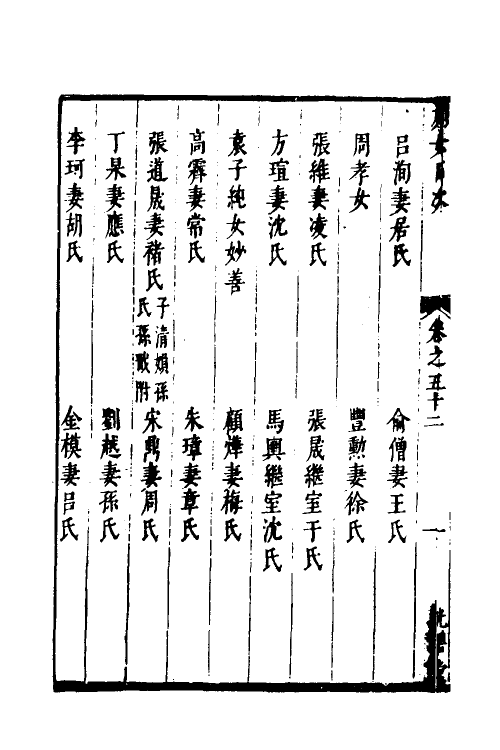 列女目次
卷之五十二
一
呂洵妻居氏
俞僧妻王氏
周孝女
豐勲妻徐氏
張維妻凌氏
張晟繼室于氏
方瑄妻沈氏
馬輿繼室沈氏
袁子純女妙善
顧燁妻梅氏
高霽妻常氏
朱璋妻章氏
張道晟妻褚氏子清頍孫氏孫畋附
宋鼎妻周氏
丁杲妻應氏
劉越妻孫氏
李珂妻胡氏
金模妻呂氏